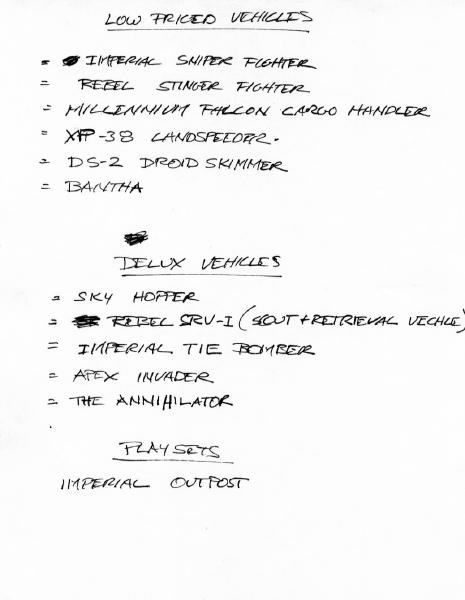 LOW PRICED VEHICLES
= IMPERIAL SNIPER FIGHTER
= REBEL STINGER FIGHTER
= MILLENNIUM FALCON CARGO HANDLER
= XP-38 LANDSPEEDER.
= DS-2 DROID SKIMMER
= BANTHA
DELUX VEHICLES
= SKY HOPPER
= REBEL SRV-I (SCOUT + RETRIEVAL VECHLE)
= IMPERIAL TIE BOMBER
= APEX INVADER
= THE ANNIHILATOR
PLAYSETS
IMPERIAL OUTPOST